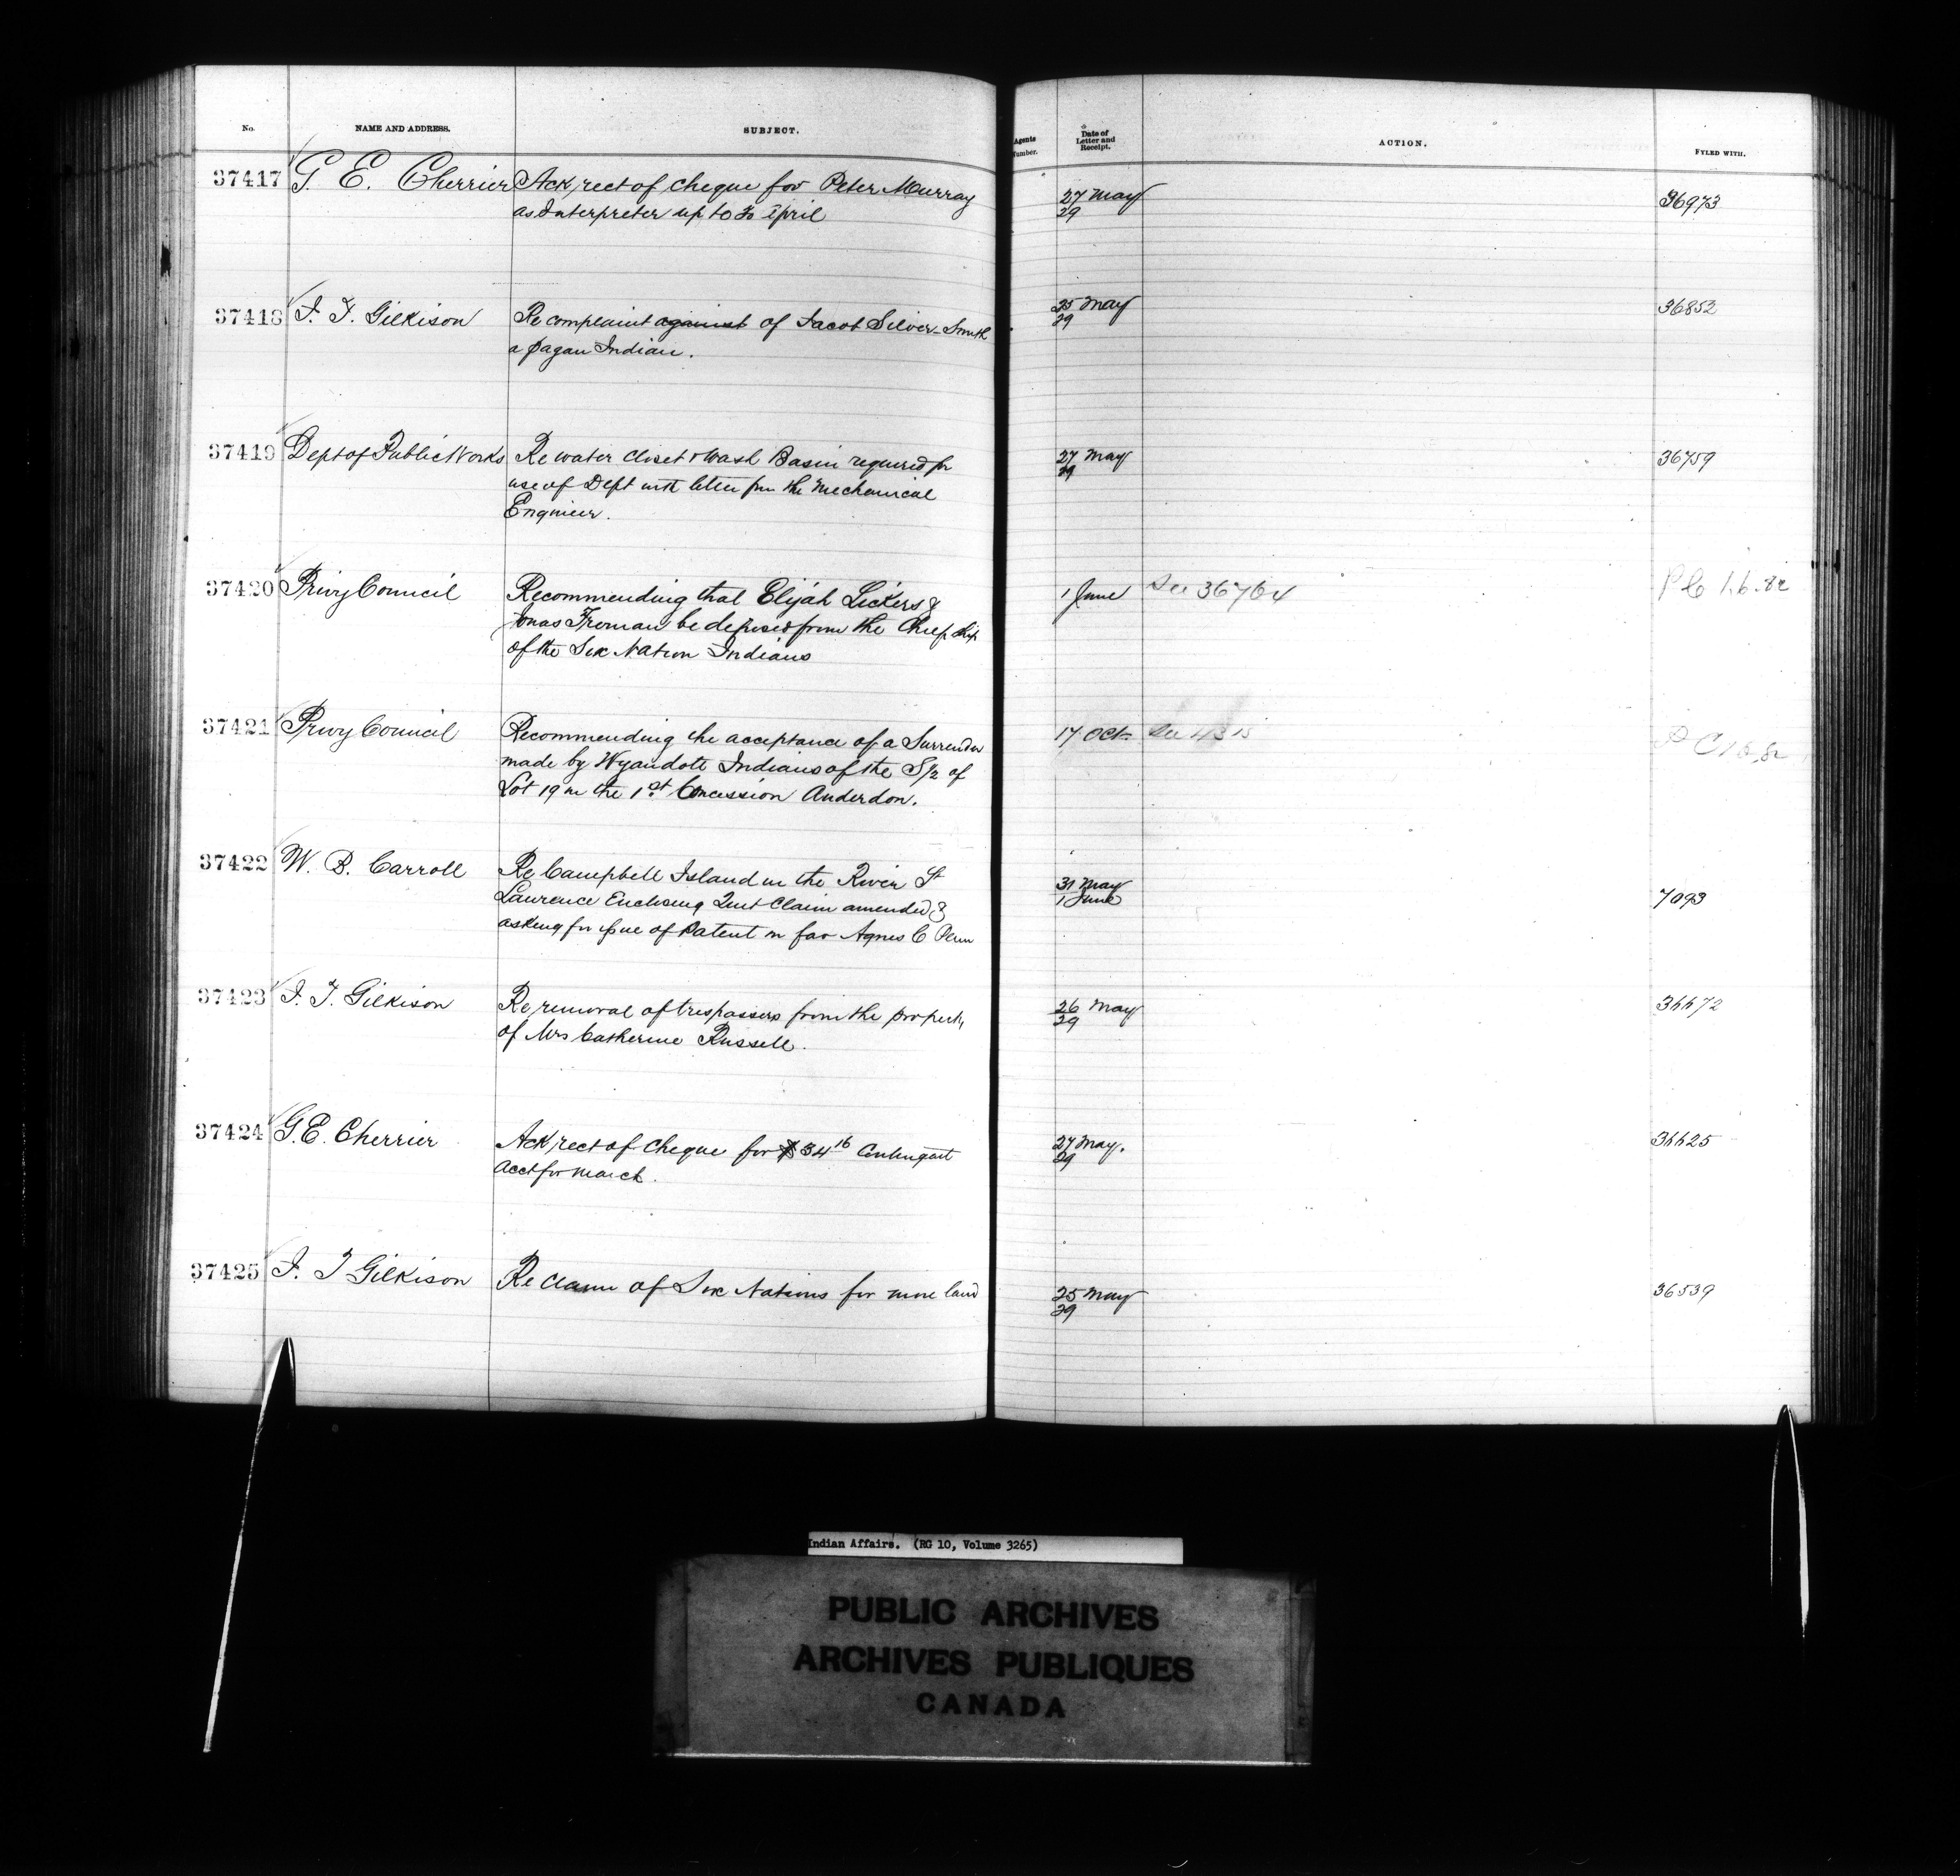 No. NAME AND ADDRESS. SUBJECT. Agents Number. Date of Letter and Receipt. ACTION. FYLED WITH.
37417 G. E. Cherrier Ack, rect of cheque for Peter Murray 27 May 36973
as Interpreter up to 30 April 29
37418 J. T. Gilkison Re complaint against of Jacob Silver-Smith 25 May 36852
a pagan Indian. 29
37419 Dept of Public Works Re water closet & Wash Basin required for 27 May 36759
use of Dept with letter frm the Mechanical 29
Engineer.
37420 Privy Council Recommending that Elijah Lickers & 1 June See 36764 P C 1.6.82
Jonas Froman be deposed from the Chiefship
of the Six Nation Indians
37421 Privy Council Recommending the acceptance of a Surrender 17 Oct. See
made by Wyandott Indians of the S/2 of
Lot 19 in the 1st Concession Anderdon.
37422 W. B. Carroll Re Campbell Island in the River St 31 May 7093
Lawrence Enclosing Quit Claim amended & 1 June
asking for issue of Patent in fav Agnes C
37423 J. T. Gilkison Re removal of trespassers from the property 26 May 36672
of Mrs Catherine Russell. 29
37424 G. E. Cherrier Ack, rect of Cheque for $34 16 Contingent 27 May. 36625
Acct for March. 29
37425 J. T Gilkison Re claim of Six Nations for more land 25 May 36539
29
Indian Affairs. (RG 10, Volume 3265)
PUBLIC ARCHIVES
ARCHIVES PUBLIQUES
CANADA